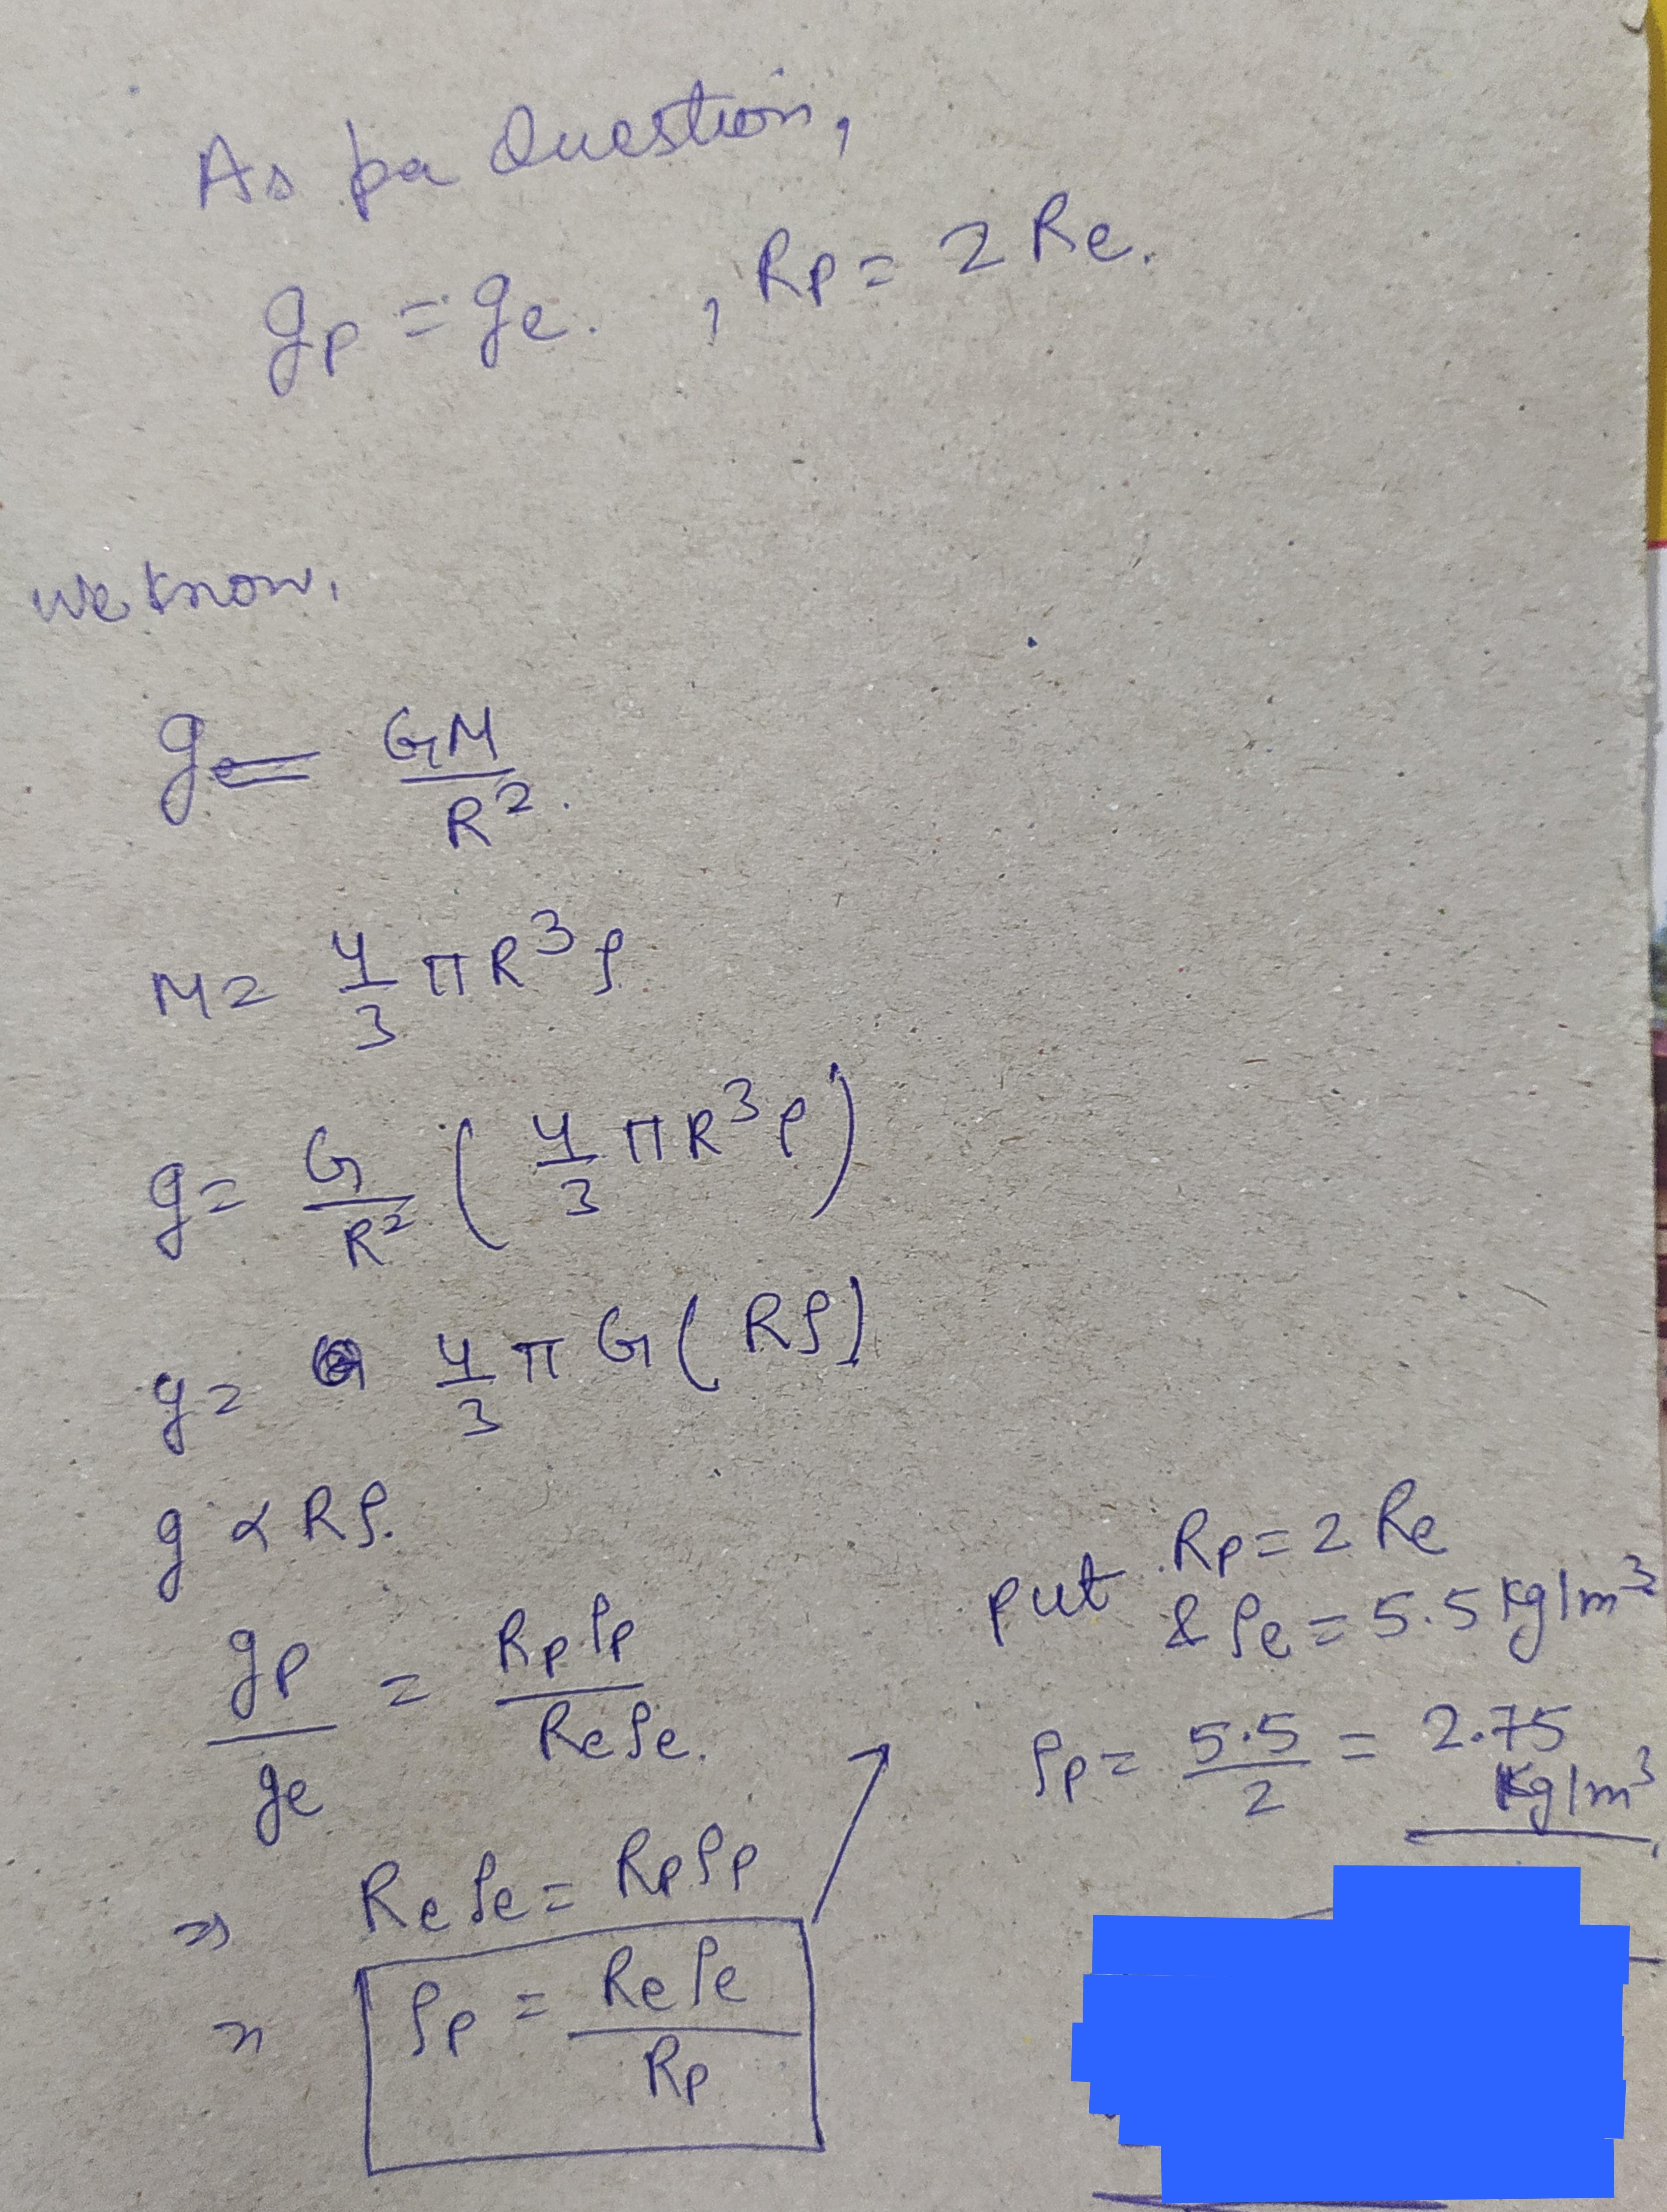 As per Question,
gp = ge. , Rp = 2 Re.
We know,
g = GM/R².
M = 4/3 πR³ρ
g = G/R² (4/3 πR³ρ)
g = 4/3 πG(Rρ)
g ∝ Rρ.
gp/ge = Rpρp/Reρe.
⇒ Reρe = Rpρp
⇒ ρp = Reρe/Rp
put Rp = 2 Re
& ρe = 5.5 Kg/m³
ρp = 5.5/2 = 2.75
Kg/m³